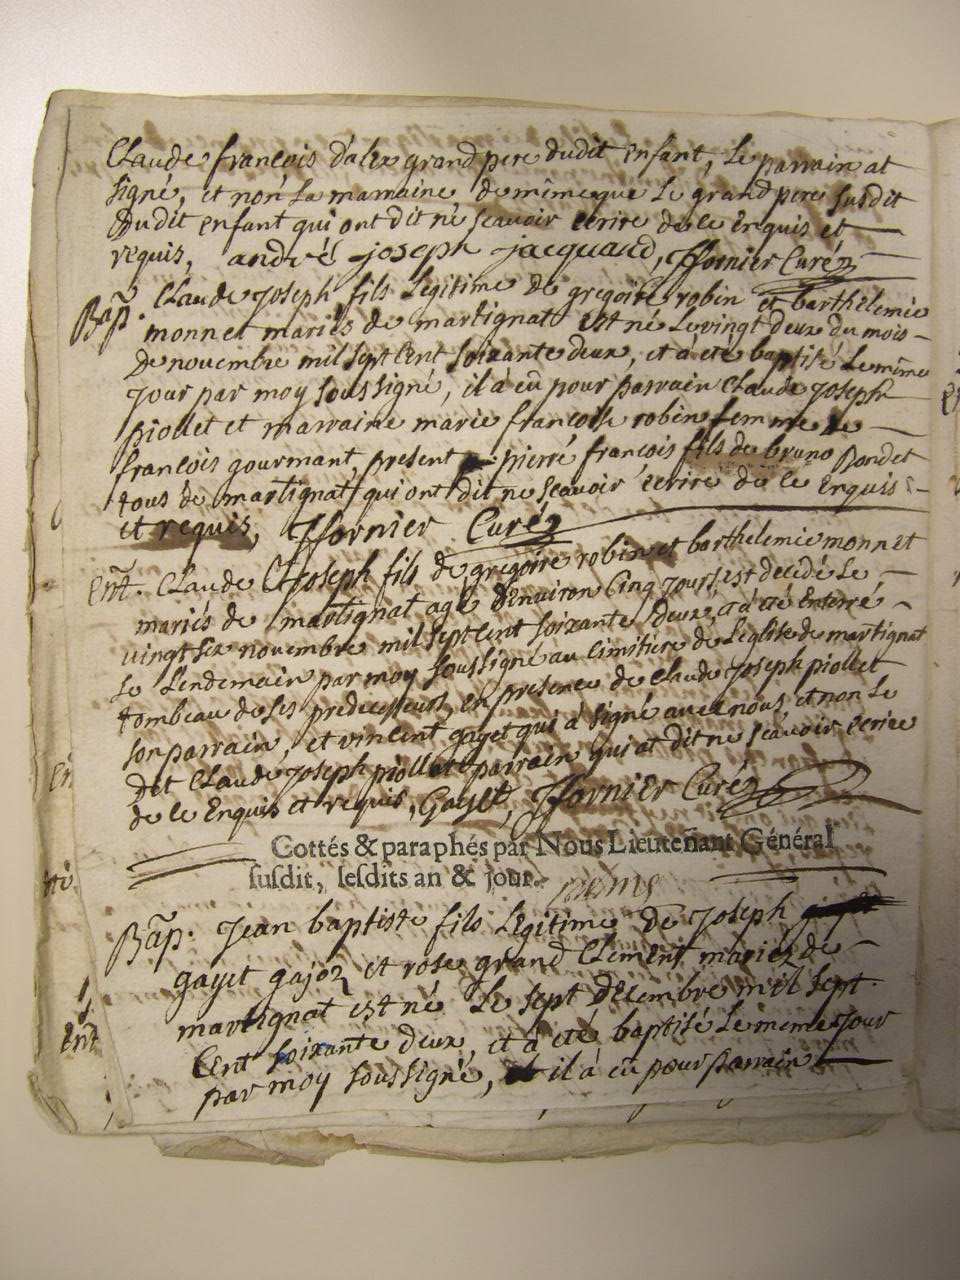 Claude françois dalex grand pere dudit enfant, le parrain at
signé, et non la marraine de même que le grand pere susdit
dudit enfant qui ont dit ne scavoir ecrire de ce enquis et
requis, andré joseph jacquand, ffornier Curé
Bap. Claude joseph fils legitime de gregoire robin et barthelemie
monnet mariés de martignat est né le vingt deux du mois
de novembre mil sept cent soixante deux, et à été baptisé le même
jour par moy soussigné, il à eû pour parrain Claude joseph
piollet et marraine marie françoise robin femme de
françois gourmant, present pierre françois fils de bruno Bondet
tous de martignat qui ont dit ne scavoir ecrire de ce enquis
et requis, ffornier Curé
Ent. Claude joseph fils de gregoire robin et barthelemie monnet
mariés de martignat agé d'environ cinq jours est decidé le
vingt six novembre mil sept cent soixante deux, à été enterré
le lendemain par moy soussigné au cimitière de l'eglise de martignat
tombeau de ses predecesseurs, en presence de claude joseph piollet
son parrain, et vincent gayet qui à signé avec nous, et non le
dit Claude joseph piollet parrain qui at dit ne scavoir ecrire
de ce enquis et requis, Gayet, ffornier Curé
Cottés & paraphés par Nous Lieuteñant Général
susdit, lesdits an & jour.
Bap. Jean baptiste fils legitime de joseph
gayet gajoz et rose grand Clement mariez de
martignat est né le sept decembre mil sept
cent soixante deux, et à été baptisé le meme jour
par moy soussigné, il à eû pour parrain
Ent